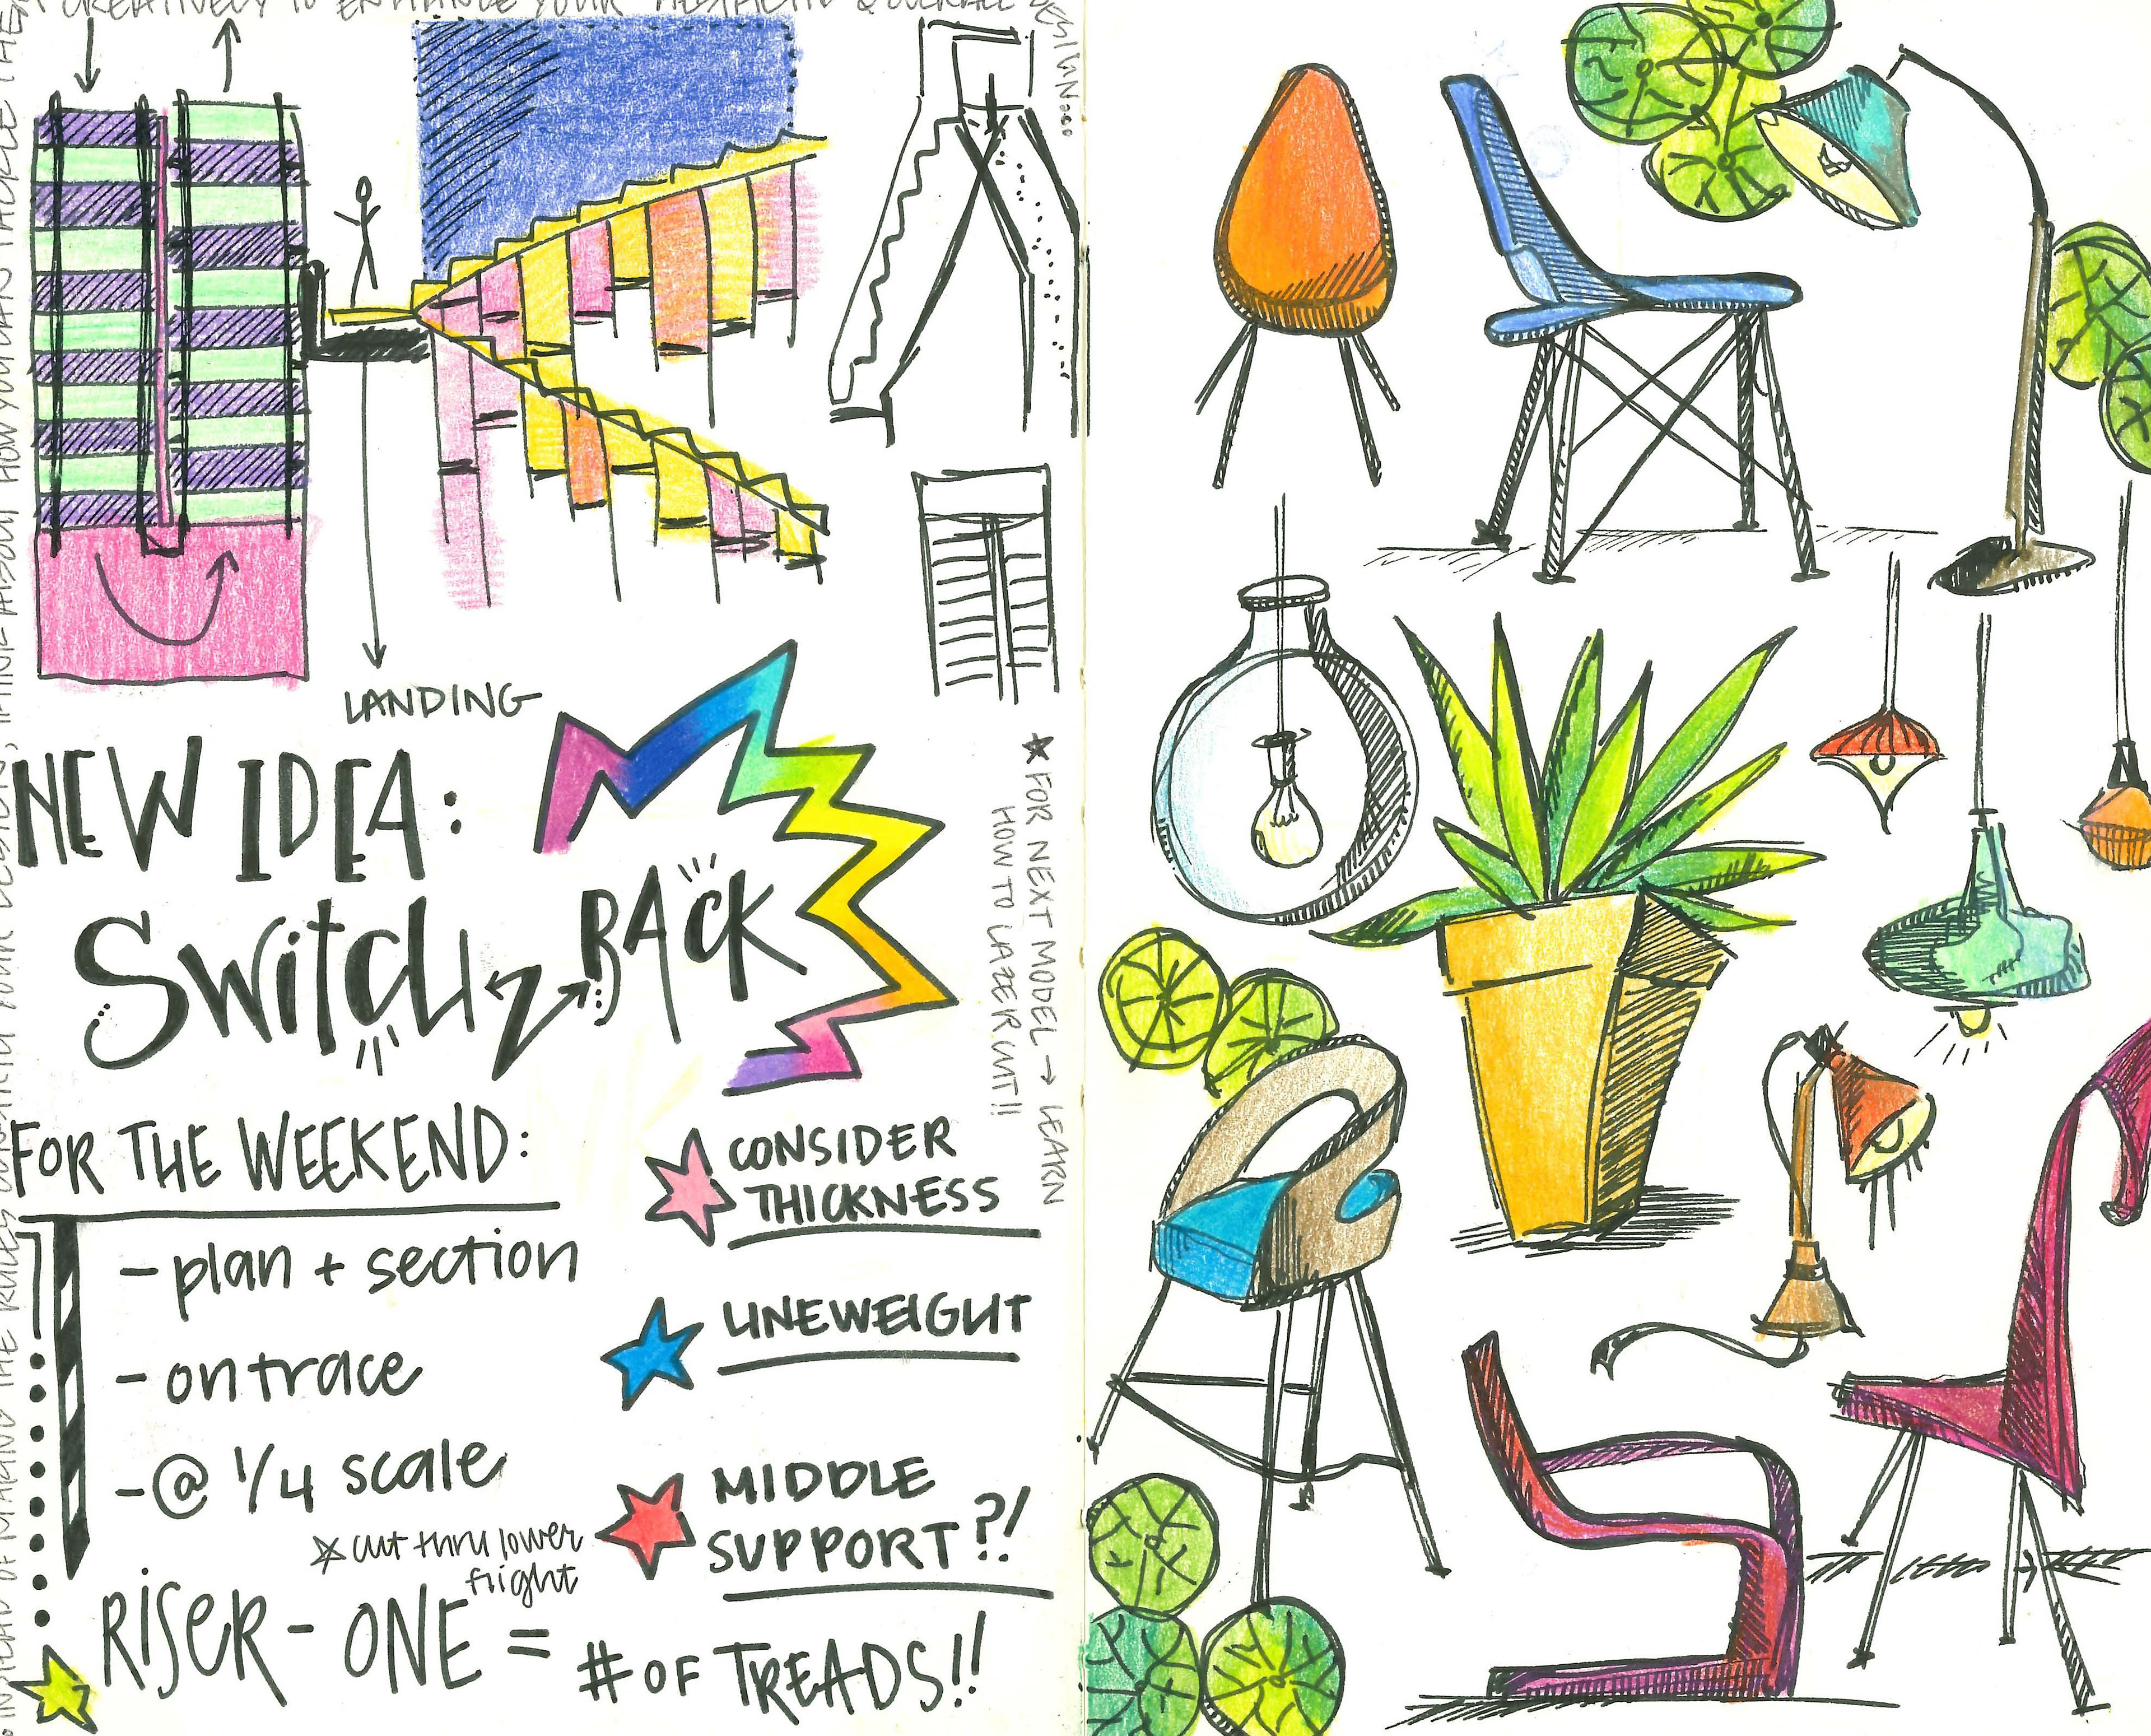 CREATIVELY TO ENHANCE YOUR AESTHETIC & OVERALL DESIGN...
LANDING
NEW IDEA:
Switch BACK
★ FOR NEXT MODEL → LEARN
HOW TO LAZER CUT!!
FOR THE WEEKEND:
- plan + section
- on trace
- @ 1/4 scale
☆ cut thru lower
flight
CONSIDER
THICKNESS
LINEWEIGHT
MIDDLE
SUPPORT?!
RiSeR - ONE = # OF TREADS!!
INSTEAD OF MAKING THE RULES YOUR DESIGN, THINK ABOUT HOW YOU CAN TACKLE THEM